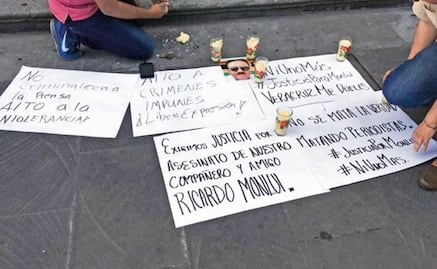 No
Criminalicen a
la Prensa
ALTO a la
INTOLERANCIA!
ALTO A
CRIMENES
IMPUNES
¡Libre Expresión!
#NiUnoMás
#JusticiaParaMonlui
VERACRUZ ME DUELES
EXIGIMOS JUSTICIA POR
ASESINATO DE NUESTRO
COMPAÑERO Y AMIGO
RICARDO MONLUI.
NO SE MATA LA VERDAD
MATANDO PERIODISTAS
#JusticiaParaMonlui
#NiUnoMás